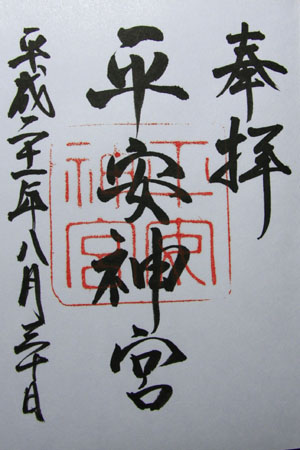 奉拝
平安神宮
平安神宮
平成二十一年八月三十日